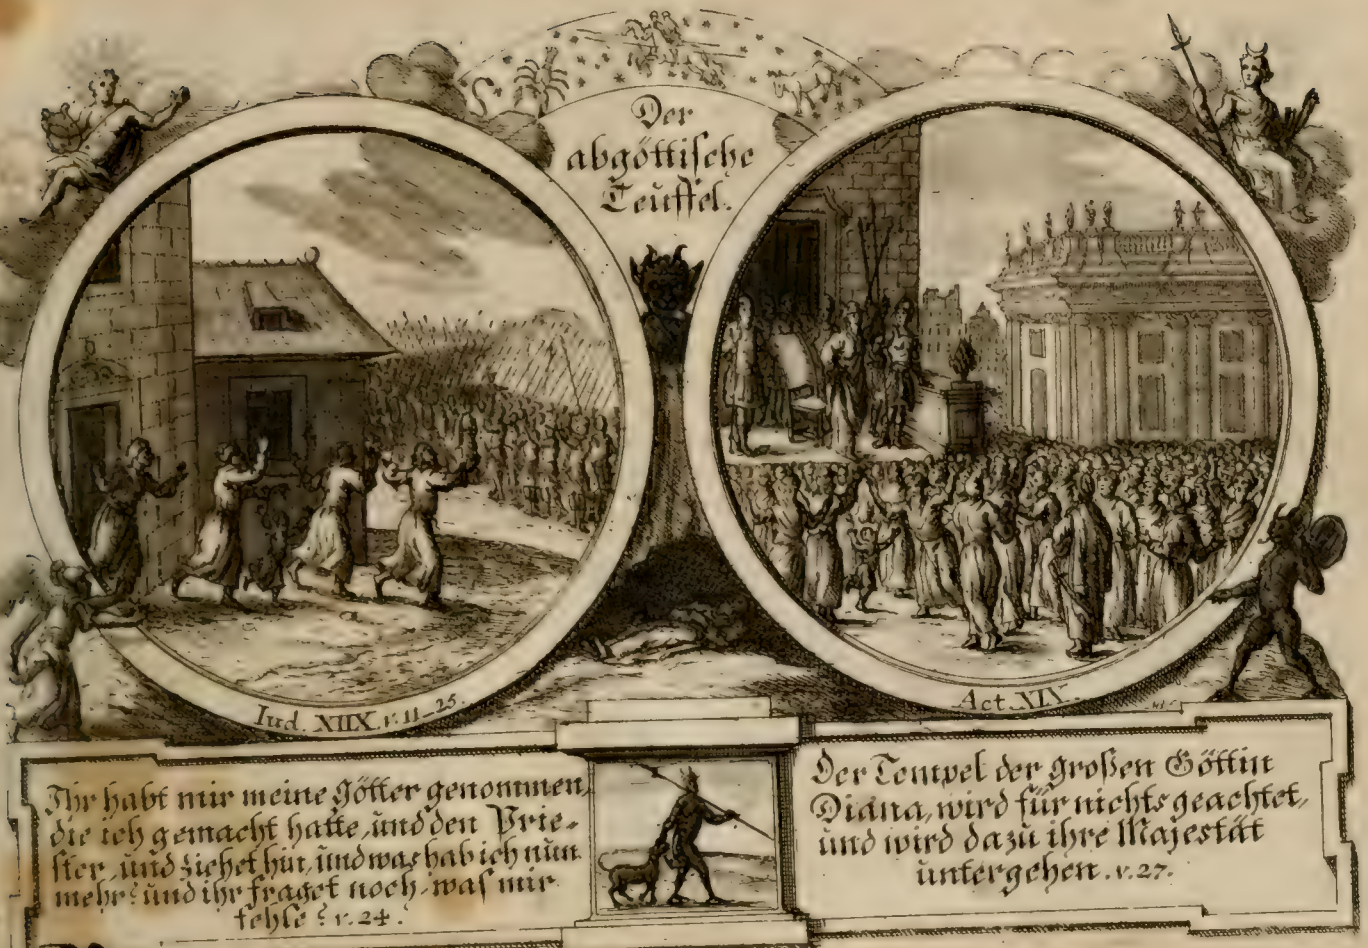 Der
abgöttische
Teuffel.
Iud. XIIX. v. 11_25.
Act. XIX.
Ihr habt mir meine Götter genommen,
die ich gemacht hatte, und den Prie-
ster, und ziehet hin, und was hab ich nun
mehr? und ihr fraget noch, was mir
fehle? v. 24.
Der Tempel der großen Göttin
Diana, wird für nichts geachtet,
und wird dazu ihre Majestät
untergehen. v. 27.